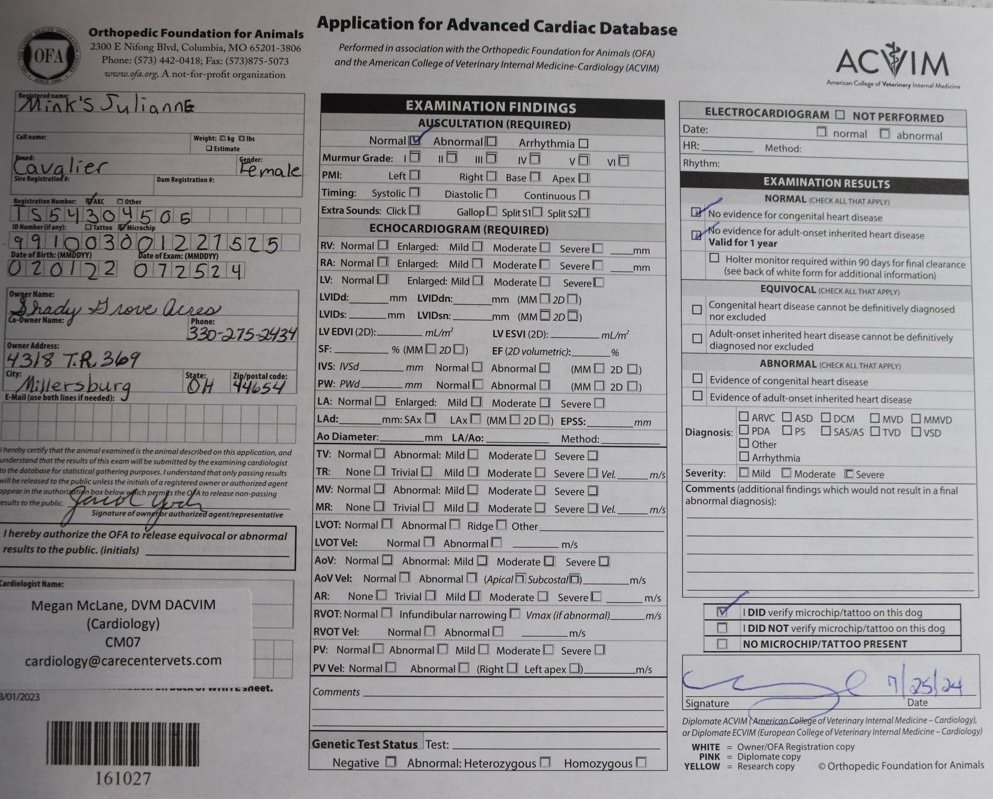 Application for Advanced Cardiac Database
Performed in association with the Orthopedic Foundation for Animals (OFA)
and the American College of Veterinary Internal Medicine-Cardiology (ACVIM)
OFA
Orthopedic Foundation for Animals
2300 E Nifong Blvd, Columbia, MO 65201-3806
Phone: (573) 442-0418; Fax: (573)875-5073
www.ofa.org. A not-for-profit organization
ACVIM
American College of Veterinary Internal Medicine
Registered name:
Mink's Julianne
Call name:
Weight: ☐ kg ☐ lbs
☐ Estimate
Breed:
Cavalier
Gender:
Female
Sire Registration #:
Dam Registration #:
Registration Number: ☑ AKC ☐ Other
TS54304505
ID Number (if any): ☐ Tattoo ☑ Microchip
991003001227525
Date of Birth: (MMDDYY)
Date of Exam: (MMDDYY)
020122 072524
Owner Name:
Shady Grove Acres
Co-Owner Name:
Phone:
330-275-2434
Owner Address:
4318 T.R. 369
City:
Millersburg
State:
OH
Zip/postal code:
44654
E-Mail (use both lines if needed):
I hereby certify that the animal examined is the animal described on this application, and
understand that the results of this exam will be submitted by the examining cardiologist
to the database for statistical gathering purposes. I understand that only passing results
will be released to the public unless the initials of a registered owner or authorized agent
appear in the authorization box below which permits the OFA to release non-passing
results to the public.
Signature of owner or authorized agent/representative
I hereby authorize the OFA to release equivocal or abnormal
results to the public. (initials)
Cardiologist Name:
Megan McLane, DVM DACVIM
(Cardiology)
CM07
cardiology@carecentervets.com
3/01/2023
161027
EXAMINATION FINDINGS
AUSCULTATION (REQUIRED)
Normal ☑ Abnormal ☐ Arrhythmia ☐
Murmur Grade: I ☐ II ☐ III ☐ IV ☐ V ☐ VI ☐
PMI: Left ☐ Right ☐ Base ☐ Apex ☐
Timing: Systolic ☐ Diastolic ☐ Continuous ☐
Extra Sounds: Click ☐ Gallop ☐ Split S1 ☐ Split S2 ☐
ECHOCARDIOGRAM (REQUIRED)
RV: Normal ☐ Enlarged: Mild ☐ Moderate ☐ Severe ☐ ____mm
RA: Normal ☐ Enlarged: Mild ☐ Moderate ☐ Severe ☐ ____mm
LV: Normal ☐ Enlarged: Mild ☐ Moderate ☐ Severe ☐
LVIDd: ____ mm LVIDdn: ____ (MM ☐ 2D ☐)
LVIDs: ____ mm LVIDsn: ____ (MM ☐ 2D ☐)
LV EDVI (2D): ____ mL/m² LV ESVI (2D): ____ mL/m²
SF: ____ % (MM ☐ 2D ☐) EF (2D volumetric): ____ %
IVS: IVSd ____ mm Normal ☐ Abnormal ☐ (MM ☐ 2D ☐)
PW: PWd ____ mm Normal ☐ Abnormal ☐ (MM ☐ 2D ☐)
LA: Normal ☐ Enlarged: Mild ☐ Moderate ☐ Severe ☐
LAd: ____ mm: SAx ☐ LAx ☐ (MM ☐ 2D ☐) EPSS: ____ mm
Ao Diameter: ____ mm LA/Ao: ____ Method: ____
TV: Normal ☐ Abnormal: Mild ☐ Moderate ☐ Severe ☐
TR: None ☐ Trivial ☐ Mild ☐ Moderate ☐ Severe ☐ Vel. ____ m/s
MV: Normal ☐ Abnormal: Mild ☐ Moderate ☐ Severe ☐
MR: None ☐ Trivial ☐ Mild ☐ Moderate ☐ Severe ☐ Vel. ____ m/s
LVOT: Normal ☐ Abnormal ☐ Ridge ☐ Other ____
LVOT Vel: Normal ☐ Abnormal ☐ ____ m/s
AoV: Normal ☐ Abnormal: Mild ☐ Moderate ☐ Severe ☐
AoV Vel: Normal ☐ Abnormal ☐ (Apical ☐ Subcostal ☐) ____ m/s
AR: None ☐ Trivial ☐ Mild ☐ Moderate ☐ Severe ☐ ____ m/s
RVOT: Normal ☐ Infundibular narrowing ☐ Vmax (if abnormal) ____ m/s
RVOT Vel: Normal ☐ Abnormal ☐ ____ m/s
PV: Normal ☐ Abnormal ☐ Mild ☐ Moderate ☐ Severe ☐
PV Vel: Normal ☐ Abnormal ☐ (Right ☐ Left apex ☐) ____ m/s
Comments
Genetic Test Status Test:
Negative ☐ Abnormal: Heterozygous ☐ Homozygous ☐
ELECTROCARDIOGRAM ☐ NOT PERFORMED
Date: ☐ normal ☐ abnormal
HR: ____ Method:
Rhythm:
EXAMINATION RESULTS
NORMAL (CHECK ALL THAT APPLY)
☑ No evidence for congenital heart disease
☑ No evidence for adult-onset inherited heart disease
Valid for 1 year
☐ Holter monitor required within 90 days for final clearance
(see back of white form for additional information)
EQUIVOCAL (CHECK ALL THAT APPLY)
☐ Congenital heart disease cannot be definitively diagnosed
nor excluded
☐ Adult-onset inherited heart disease cannot be definitively
diagnosed nor excluded
ABNORMAL (CHECK ALL THAT APPLY)
☐ Evidence of congenital heart disease
☐ Evidence of adult-onset inherited heart disease
Diagnosis: ☐ ARVC ☐ ASD ☐ DCM ☐ MVD ☐ MMVD
☐ PDA ☐ PS ☐ SAS/AS ☐ TVD ☐ VSD
☐ Other
☐ Arrhythmia
Severity: ☐ Mild ☐ Moderate ☐ Severe
Comments (additional findings which would not result in a final
abnormal diagnosis):
☑ I DID verify microchip/tattoo on this dog
☐ I DID NOT verify microchip/tattoo on this dog
☐ NO MICROCHIP/TATTOO PRESENT
7/25/24
Signature Date
Diplomate ACVIM (American College of Veterinary Internal Medicine – Cardiology),
or Diplomate ECVIM (European College of Veterinary Internal Medicine – Cardiology)
WHITE = Owner/OFA Registration copy
PINK = Diplomate copy
YELLOW = Research copy
© Orthopedic Foundation for Animals